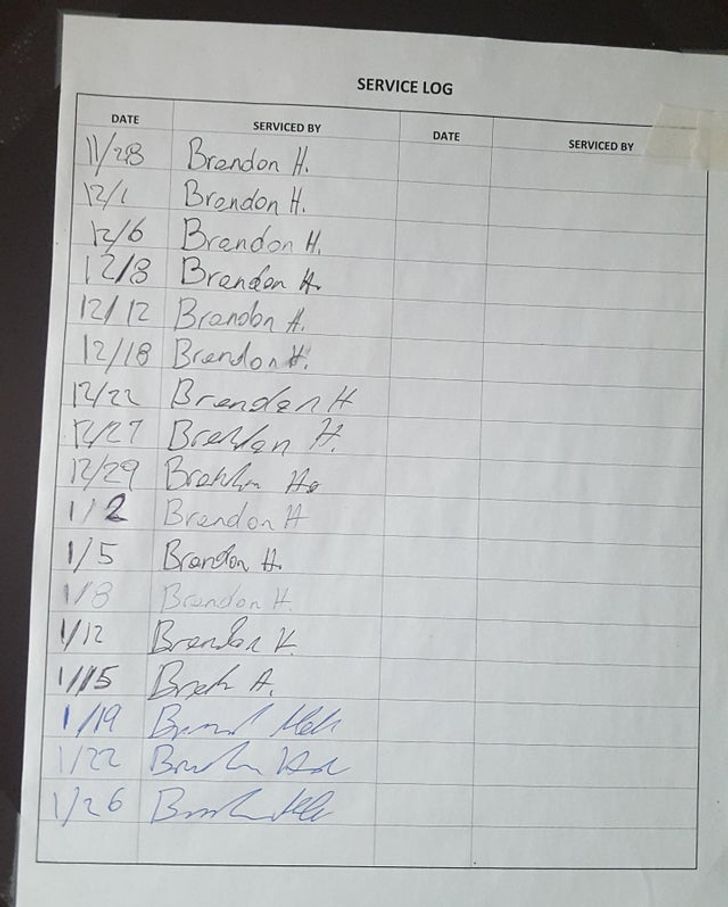 SERVICE LOG
DATE SERVICED BY DATE SERVICED BY
11/28 Brendon H.
12/1 Brendon H.
12/6 Brendon H.
12/8 Brendon H.
12/12 Brendon H.
12/18 Brendon H.
12/22 Brendon H
12/27 Brendon H.
12/29 Brendon
1/2 Brendon H
1/5 Brendon H.
1/8 Brendon H.
1/12 Brendon H.
1/15
1/19
1/22
1/26